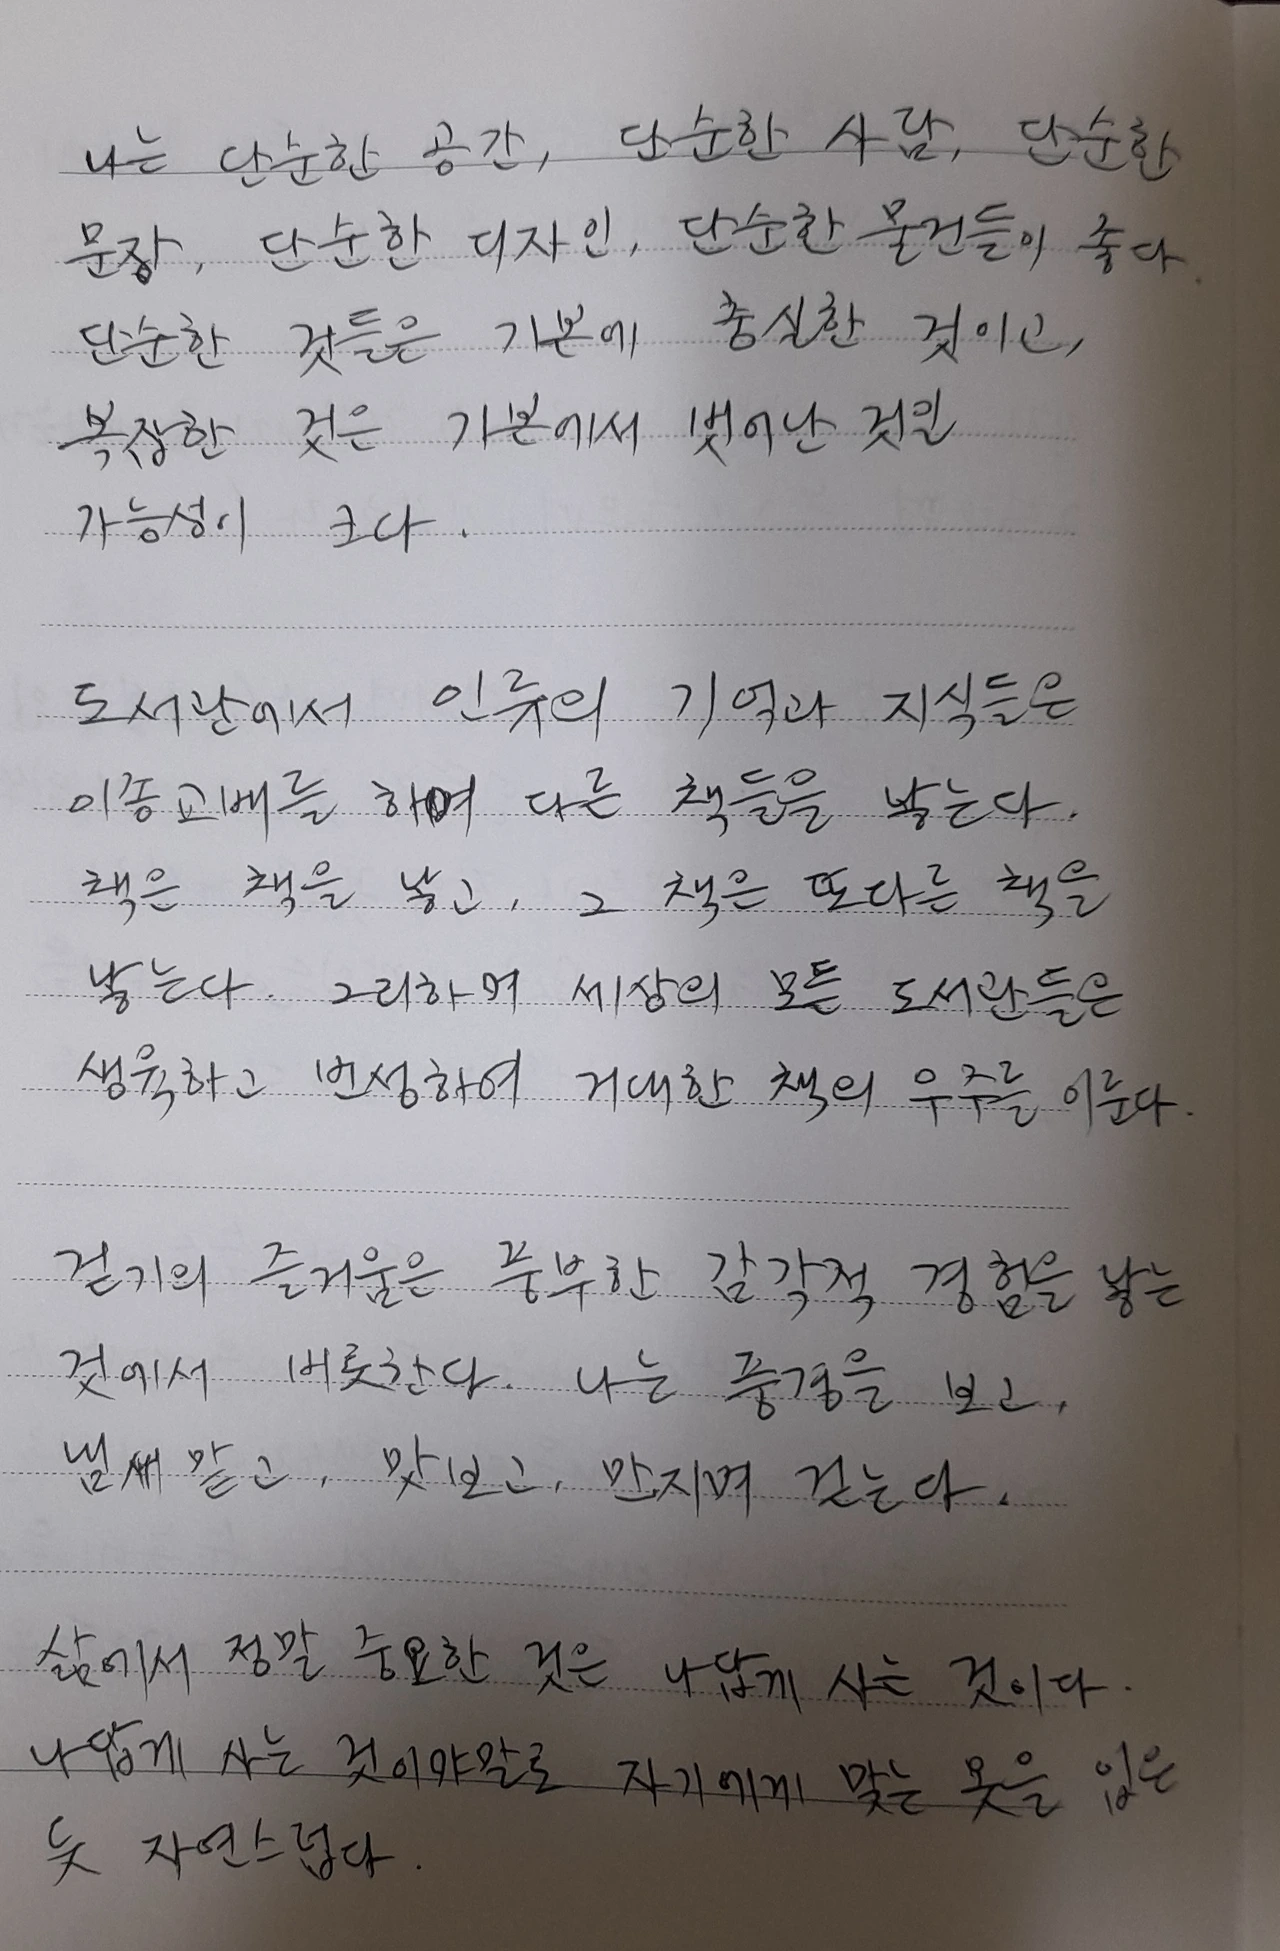 나는 단순한 공간, 단순한 사람, 단순한
문장, 단순한 디자인, 단순한 물건들이 좋다.
단순한 것들은 기본에 충실한 것이고,
복잡한 것은 기본에서 벗어난 것일
가능성이 크다.
도서관에서 인류의 기억과 지식들은
이종교배를 하며 다른 책들을 낳는다.
책은 책을 낳고, 그 책은 또다른 책을
낳는다. 그리하여 세상의 모든 도서관들은
생육하고 번성하여 거대한 책의 우주를 이룬다.
걷기의 즐거움은 풍부한 감각적 경험을 낳는
것에서 비롯한다. 나는 풍경을 보고,
냄새맡고, 맛보고, 만지며 걷는다.
삶에서 정말 중요한 것은 나답게 사는 것이다.
나답게 사는 것이야말로 자기에게 맞는 옷을 입은
듯 자연스럽다.